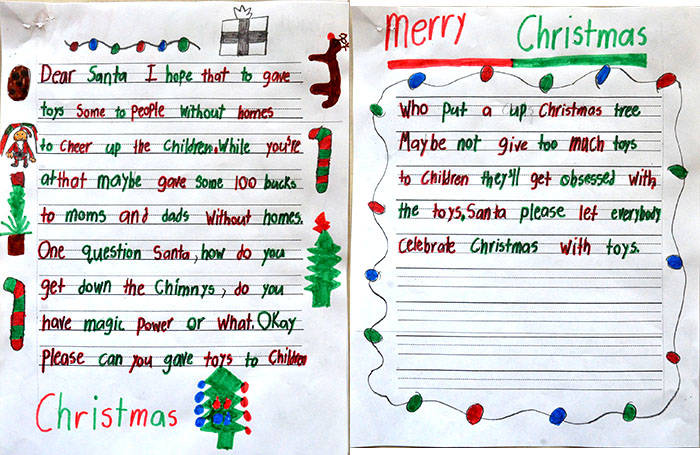 Dear Santa I hope that to gave
toys Some to People Without homes
to Cheer up the Children. While you're
at that maybe gave Some 100 bucks
to moms and dads Without homes.
One question Santa, how do you
get down the Chimnys, do you
have magic Power or What. Okay
Please can you gave toys to Children
Christmas
Merry Christmas
Who Put a up Christmas tree
Maybe not give too much toys
to Children they'll get obsessed With
the toys. Santa please let everybody
Celebrate Christmas With toys.